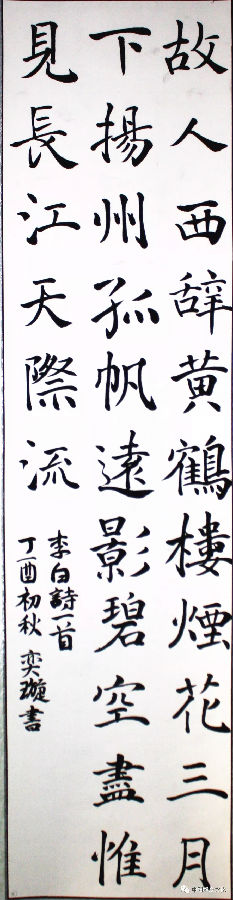 故人西辞黄鶴樓煙花三月
下揚州孤帆遠影碧空盡惟
見長江天際流
李白詩一首
丁酉初秋 奕璇書